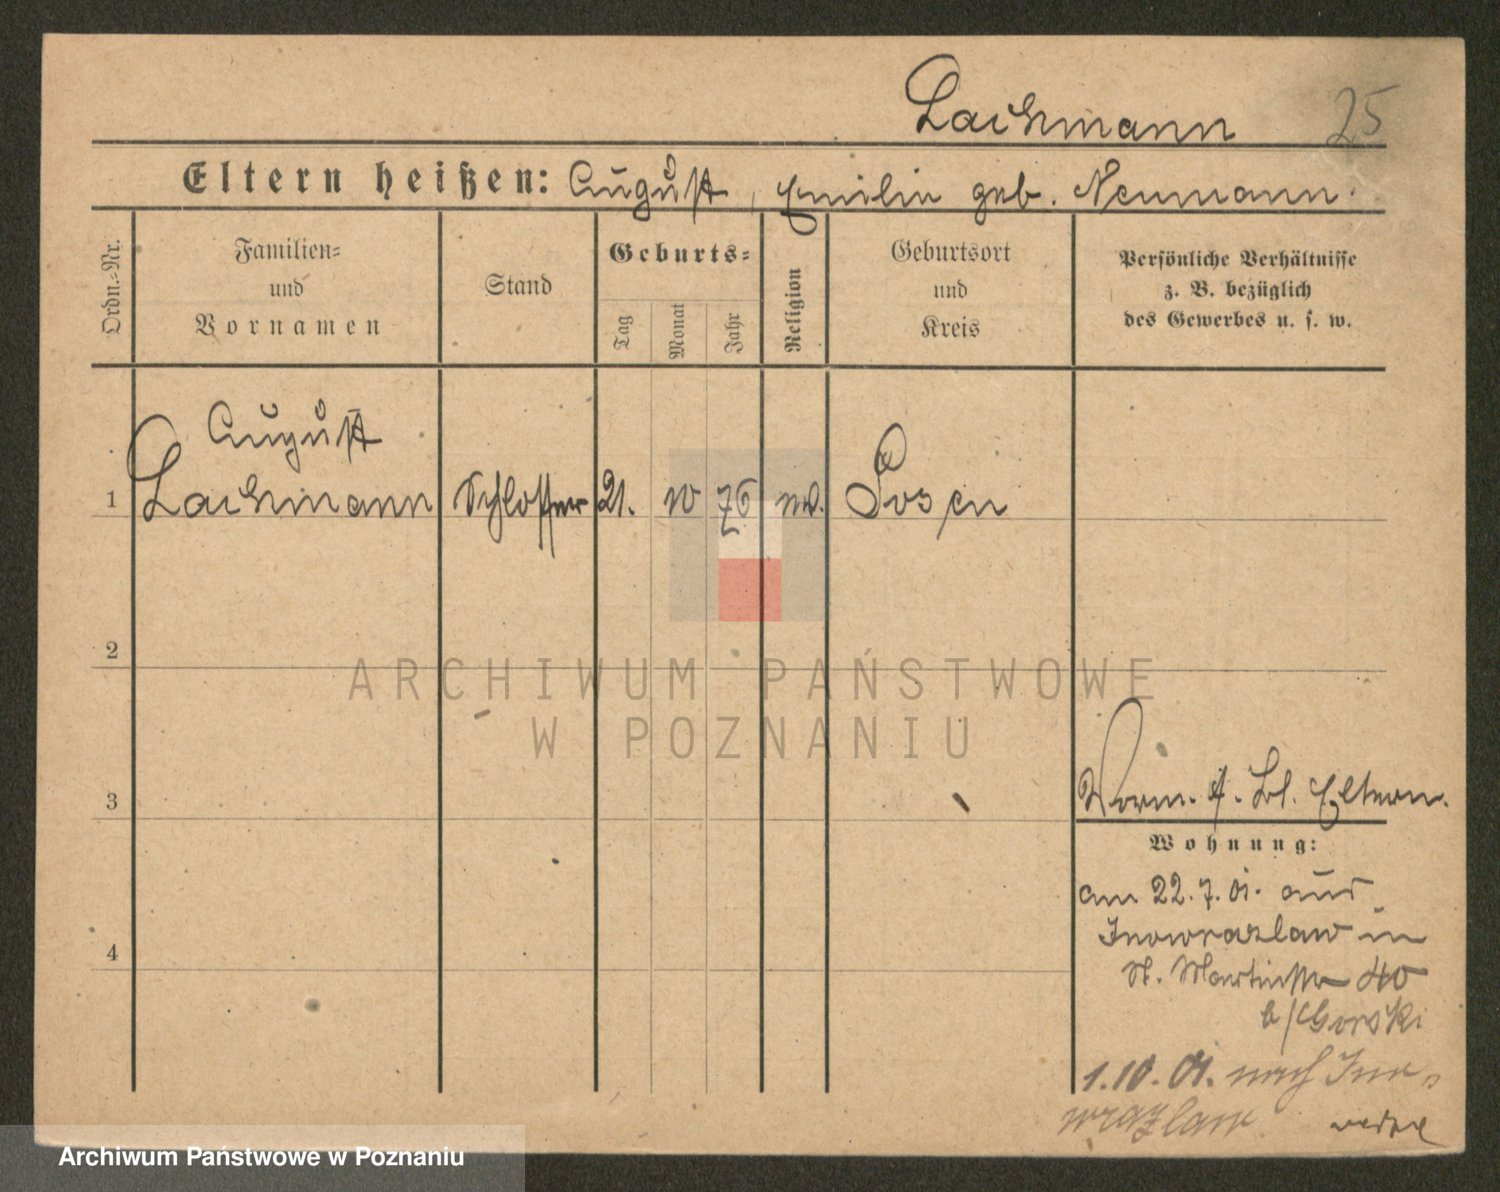 Lachmann 25
Eltern heißen: August, Emilie geb. Neumann.
Ordn.=Nr.
Familien=
und
Vornamen
Stand
Geburts=
Tag
Monat
Jahr
Religion
Geburtsort
und
Kreis
Persönliche Verhältnisse
z. B. bezüglich
des Gewerbes u. s. w.
August
1 Lachmann Schlosser 21. 10 76 Posen
2
ARCHIWUM PAŃSTWOWE
W POZNANIU
3
Vorm. Bl. Eltern.
Wohnung:
am 22.7.01. aus
Inowrazlaw in
4
St. Martinstr 40
b/Gorski
1.10.01. nach Ino=
wrazlaw
Archiwum Państwowe w Poznaniu